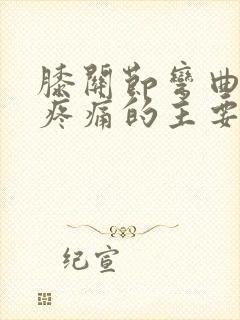 膝關節彎曲
疼痛的主要
纪宣